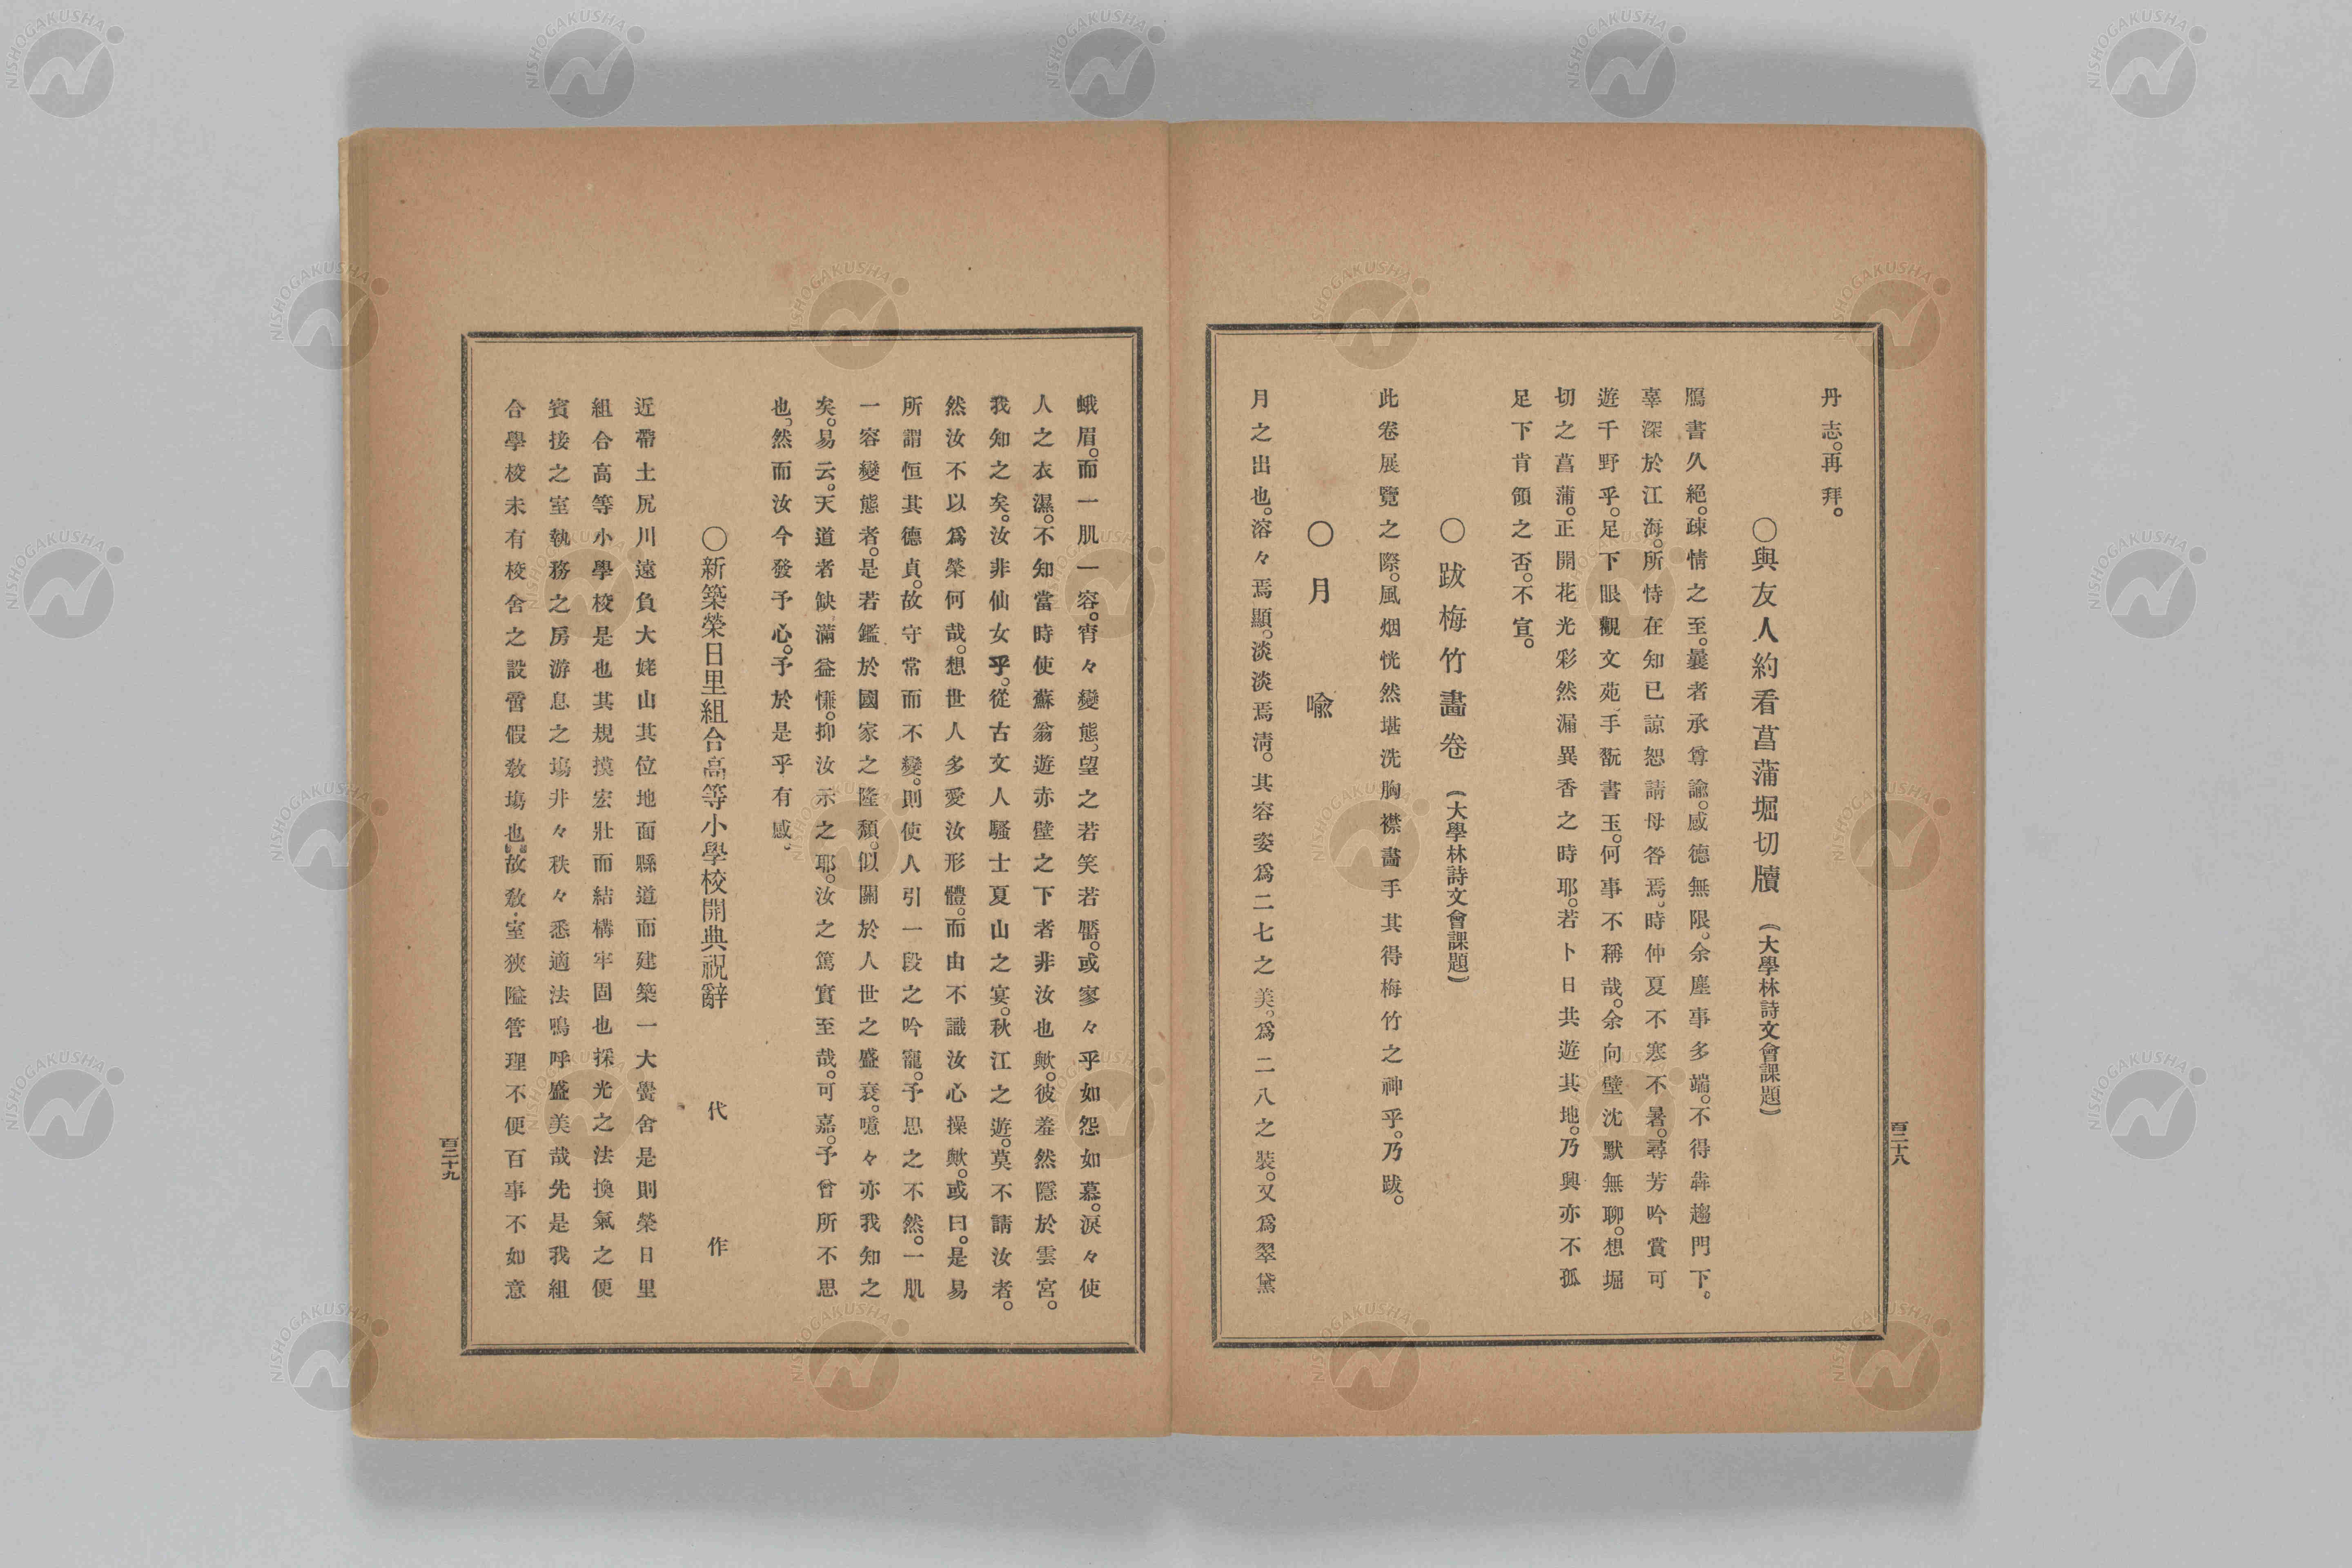 丹志。再拜。
〇與友人約看菖蒲堀切牘（大學林詩文會課題）
鴈書久絕。疎情之至。曩者承尊諭。感德無限。余塵事多端。不得犇趨門下。
辜深於江海。所恃在知已諒恕請母咎焉。時仲夏不寒不暑。尋芳吟賞可
遊千野乎。足下眼觀文苑。手翫書玉。何事不稱哉。余向壁沈默無聊。想堀
切之菖蒲。正開花光彩然漏異香之時耶。若卜日共遊其地。乃興亦不孤
足下肯領之否。不宣。
〇跋梅竹畵卷（大學林詩文會課題）
此卷展覽之際。風烟恍然堪洗胸襟畵手其得梅竹之神乎。乃跋。
〇月喩
月之出也。溶々焉顯。淡淡焉淸。其容姿爲二七之美。爲二八之裝。又爲翠黛
百二十八
蛾眉。而一肌一容。宵々變態。望之若笑若靨。或寥々乎如怨如慕。淚々使
人之衣濕。不知當時使蘇翁遊赤壁之下者非汝也歟。彼羞然隱於雲宮。
我知之矣。汝非仙女乎。從古文人騷士夏山之宴。秋江之遊。莫不請汝者。
然汝不以爲榮何哉。想世人多愛汝形體。而由不識汝心操歟。或曰。是易
所謂恒其德貞。故守常而不變。則使人引一段之吟寵。予思之不然。一肌
一容變態者。是若鑑於國家之隆頹。似關於人世之盛衰。噫々亦我知之
矣。易云。天道者缺滿益慊。抑汝示之耶。汝之篤實至哉。可嘉。予曾所不思
也。然而汝今發予心。予於是乎有感。
〇新築榮日里組合高等小學校開典祝辭　代作
近帶土尻川遠負大姥山其位地面縣道而建築一大黌舍是則榮日里
組合高等小學校是也其規摸宏壯而結構牢固也採光之法換氣之便
賓接之室執務之房游息之塲井々秩々悉適法鳴呼盛美哉先是我組
合學校未有校舍之設嘗假敎塲也故敎室狹隘管理不便百事不如意
百二十九